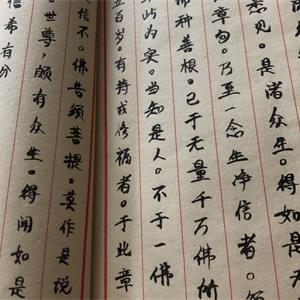 信希有分
。世尊。颇有众生。得闻如是
信不。佛告须菩提。莫作是说
五百岁。有持戒修福者。于此章
此为实。当知是人。不于一佛
种善根。已于无量千万佛所
章句。乃至一念生净信者。
悉见。是诸众生